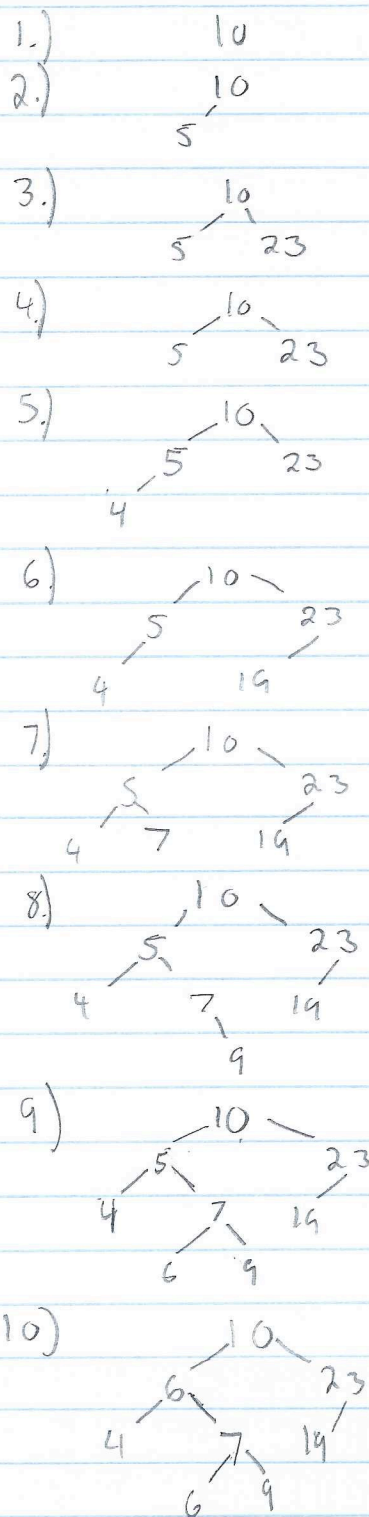 1.) 10
2.) 10
5
3.) 10
5 23
4.) 10
5 23
5.) 10
5 23
4
6.) 10
5 23
4 19
7.) 10
5 23
4 7 19
8.) 10
5 23
4 7 19
9
9) 10
5 23
4 7 19
6 9
10) 10
6 23
4 7 19
6 9